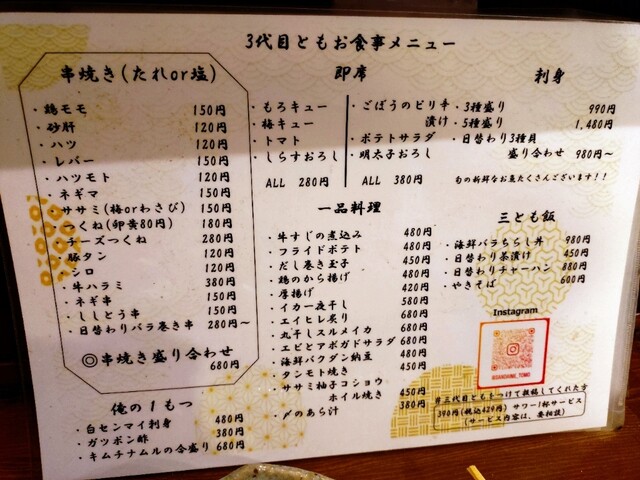 3代目ともお食事メニュー
串焼き(たれor塩)
・鶏モモ 150円
・砂肝 120円
・ハツ 120円
・レバー 150円
・ハツモト 120円
・ネギマ 150円
・ササミ(梅orわさび) 150円
・つくね(卵黄80円) 180円
・チーズつくね 280円
・豚タン 120円
・シロ 120円
・牛ハラミ 380円
・ネギ串 150円
・ししとう串 150円
・日替わりバラ巻き串 280円~
◎串焼き盛り合わせ
680円
俺の1もつ
・白センマイ刺身 480円
・ガツポン酢 380円
・キムチナムルの合盛り 680円
即席
・もろキュー
・梅キュー
・トマト
・しらすおろし
ALL 280円
・ごぼうのピリ辛
漬け
・ポテトサラダ
・明太子おろし
ALL 380円
一品料理
・牛すじの煮込み 480円
・フライドポテト 480円
・だし巻き玉子 450円
・鶏のから揚げ 480円
・厚揚げ 420円
・イカ一夜干し 580円
・エイヒレ炙り 680円
・丸干しスルメイカ 680円
・エビとアボガドサラダ 680円
・海鮮バクダン納豆 480円
・タンモト焼き 450円
・ササミ柚子コショウ
ホイル焼き 450円
・〆のあら汁 380円
刺身
・3種盛り 990円
・5種盛り 1,480円
・日替わり3種貝
盛り合わせ 980円~
旬の新鮮なお魚たくさんございます!!
三とも飯
・海鮮バラちらし丼 980円
・日替わり茶漬け 450円
・日替わりチャーハン 880円
・やきそば 600円
Instagram
@SANDAIME_TOMO
#三代目ともトつけて投稿してくれた方
390円(税込429円) サワー1杯サービス
(サービス内容は、要相談)